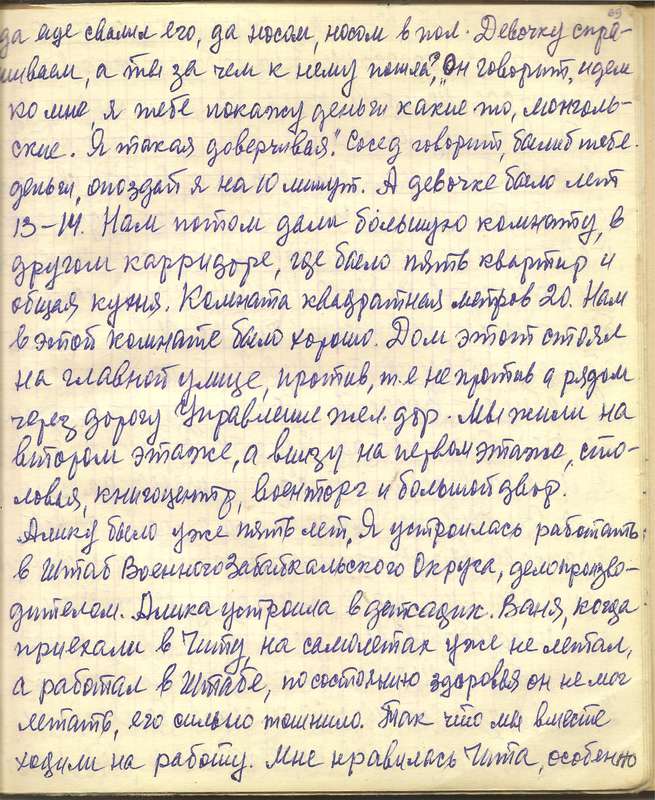 69
да еще свалил его, да носом, носом в пол. Девочку спра-
шиваем, а ты за чем к нему пошла?, „Он говорит, идем
ко мне, я тебе покажу деньги какие то, монголь-
ские. Я такая доверчивая." Сосед говорит, были б тебе
деньги, опоздай я на 10 минут. А девочке было лет
13-14. Нам потом дали большую комнату, в
другом карридоре, где было пять квартир и
общая кухня. Комната квадратная метров 20. Нам
в этой комнате было хорошо. Дом этот стоял
на главной улице, против, т.е не против а рядом
через дорогу Управление жел. дор. Мы жили на
втором этаже, а внизу на первом этаже, сто-
ловая, книгоцентр, военторг и большой двор.
Алику было уже пять лет, Я устроилась работать
в Штаб Военного Забайкальского Округа, делопроизво-
дителем. Алика устроила в детсадик. Ваня, когда
приехали в Читу, на самолетах уже не летал,
а работал в Штабе, по состоянию здоровья он не мог
летать, его сильно тошнило. Так что мы вместе
ходили на работу. Мне нравилась Чита, особенно